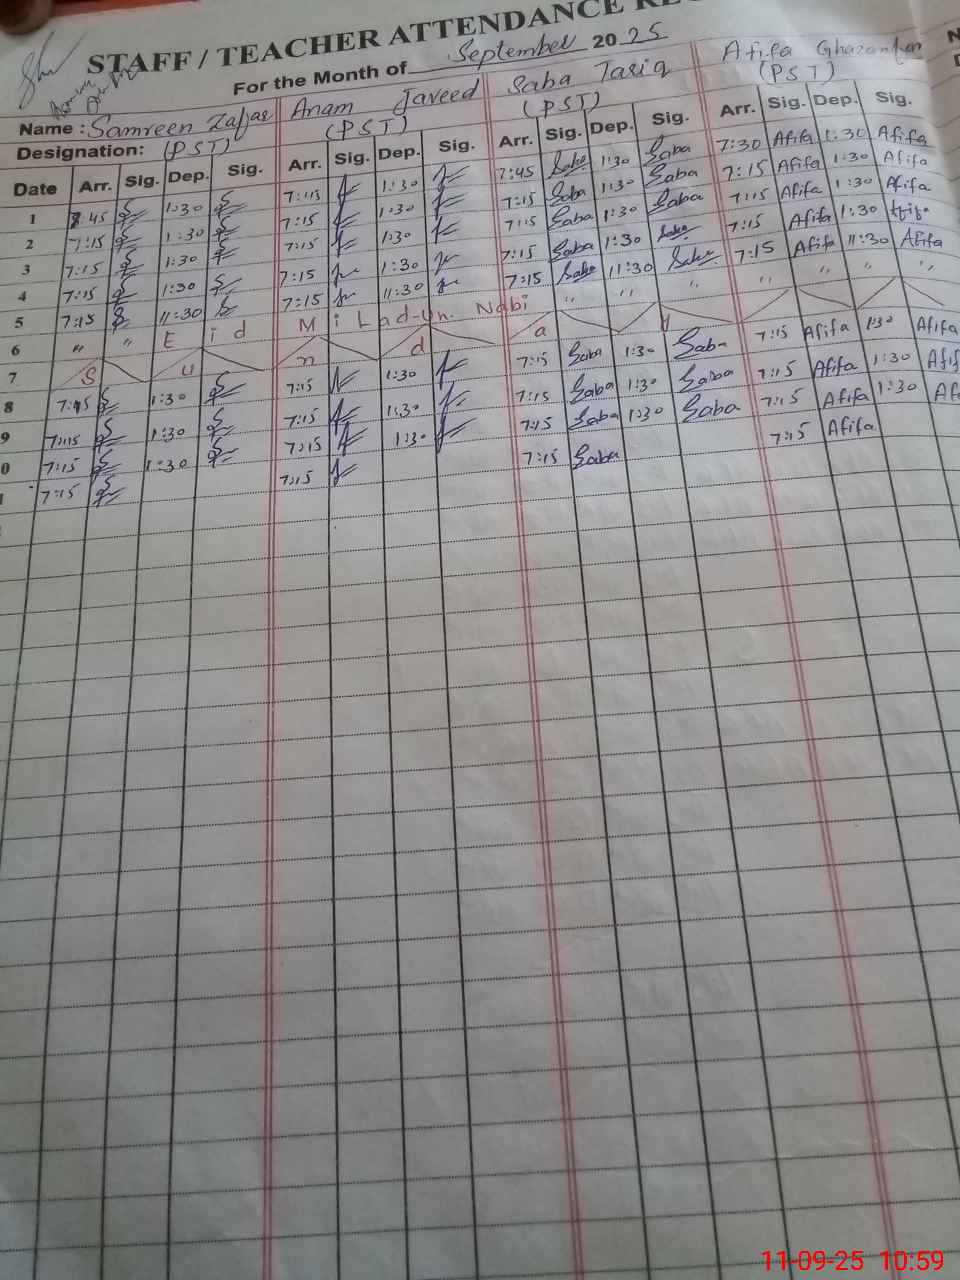 STAFF / TEACHER ATTENDANCE RE
For the Month of September 2025
Name : Samreen Zafar Anam Javeed Saba Tariq Afifa Ghazanfar
Designation: (PST) (PST) (PST) (PST)
Date Arr. Sig. Dep. Sig. Arr. Sig. Dep. Sig. Arr. Sig. Dep. Sig. Arr. Sig. Dep. Sig.
1 7:45 1:30 7:45 1:30 7:45 Saba 1:30 Saba 7:30 Afifa 1:30 Afifa
2 7:15 1:30 7:15 1:30 7:15 Saba 1:30 Saba 7:15 Afifa 1:30 Afifa
3 7:15 1:30 7:15 1:30 7:15 Saba 1:30 Saba 7:15 Afifa 1:30 Afifa
4 7:15 1:30 7:15 1:30 7:15 Saba 1:30 Saba 7:15 Afifa 1:30 Afifa
5 7:15 11:30 7:15 11:30 7:15 Saba 11:30 Saba 7:15 Afifa 11:30 Afifa
6 " " Eid Milad-un-Nabi " " " " " " "
7 S u n d a y
8 7:15 1:30 7:15 1:30 7:15 Saba 1:30 Saba 7:15 Afifa 1:30 Afifa
9 7:15 1:30 7:15 1:30 7:15 Saba 1:30 Saba 7:15 Afifa 1:30 Afif
0 7:15 1:30 7:15 1:30 7:15 Saba 1:30 Saba 7:15 Afifa 1:30 Af
7:15 7:15 7:15 Saba 7:15 Afifa
11-09-25 10:59